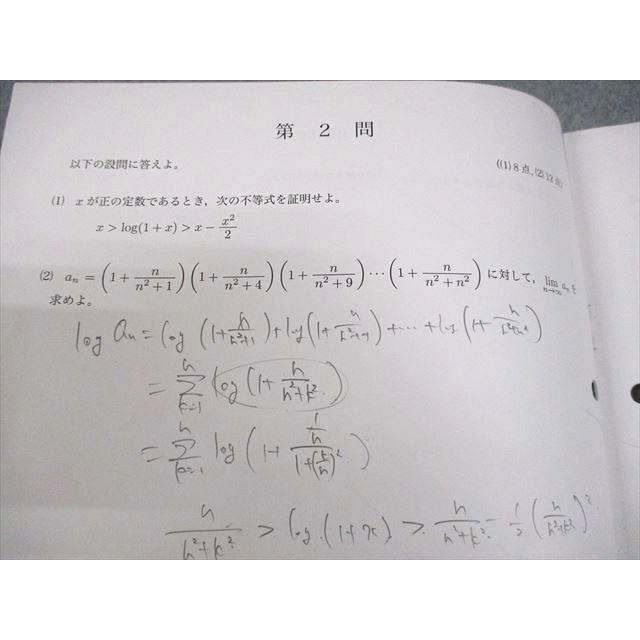 第 2 問
以下の設問に答えよ。
((1) 8点, (2) 12点)
(1) x が正の定数であるとき，次の不等式を証明せよ。
x > log(1 + x) > x − x²/2
(2) aₙ = (1 + n/(n²+1))(1 + n/(n²+4))(1 + n/(n²+9))⋯(1 + n/(n²+n²)) に対して，lim_{n→∞} aₙ を
求めよ。
log aₙ = log(1+n/(n²+1)) + log(1+n/(n²+4)) + ⋯ + log(1+n/(n²+n²))
= Σ_{k=1}^{n} log(1 + n/(n²+k²))
= Σ_{k=1}^{n} log(1 + (1/n)/(1+(k/n)²))
n/(n²+k²) > log(1+x) > n/(n²+k²) − 1/2(n/(n²+k²))²